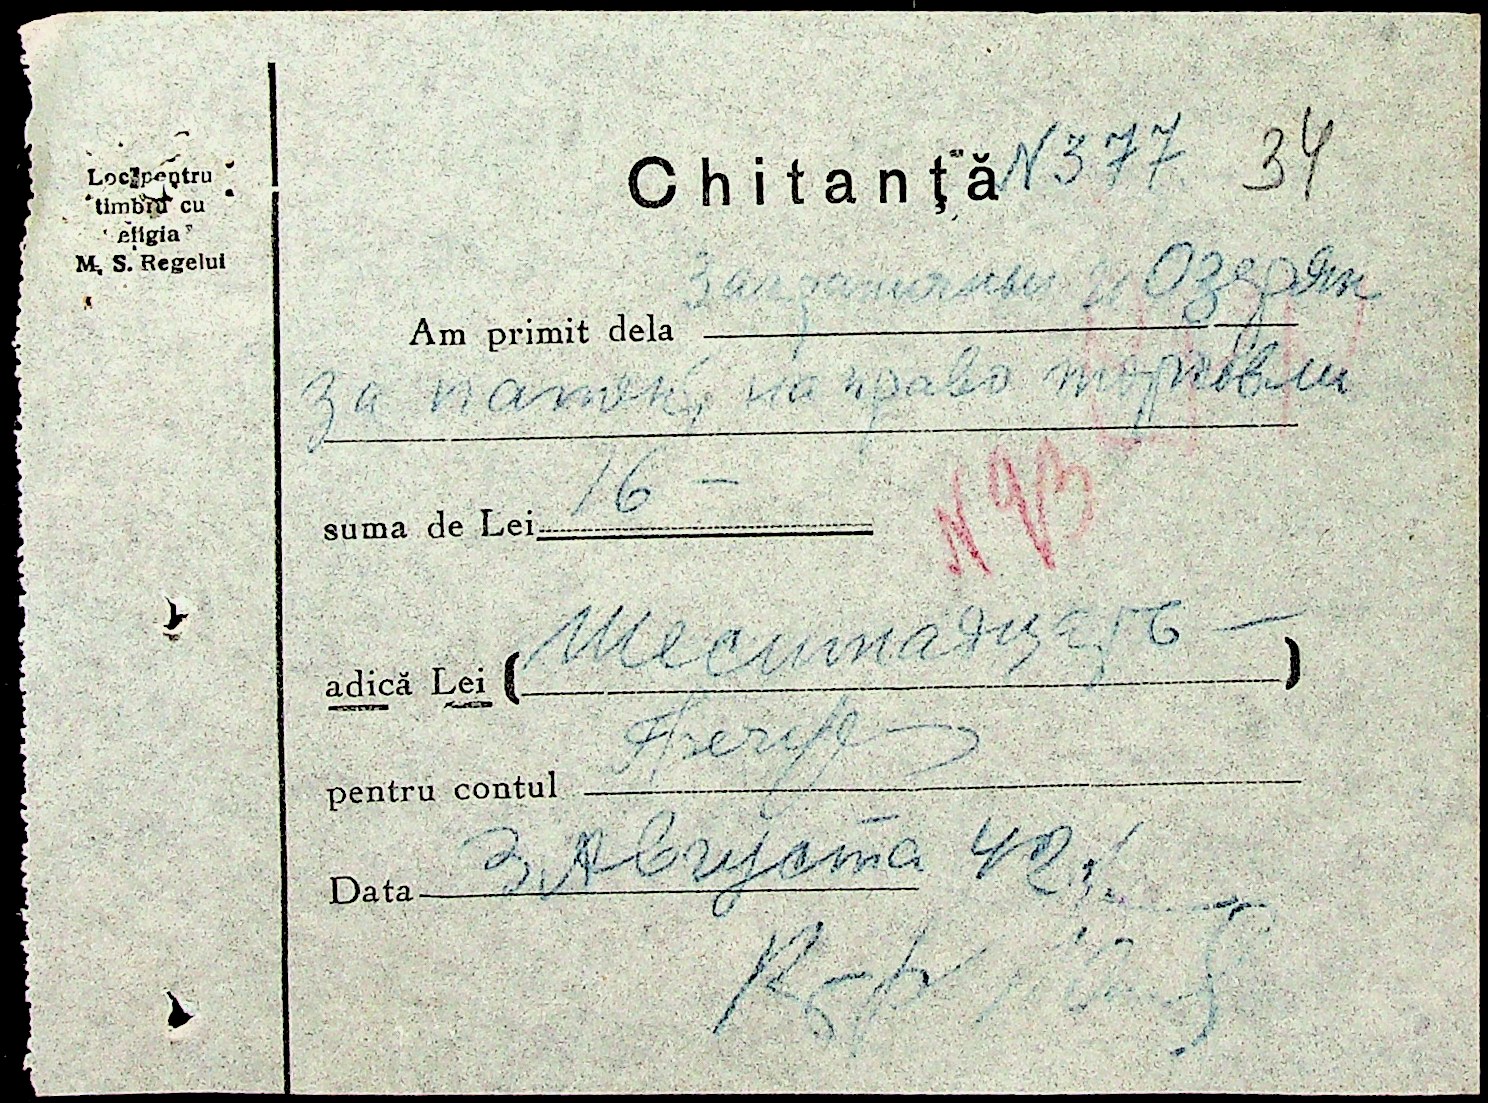 Loc pentru
timbru cu
efigia
M. S. Regelui
Chitanţă N 377 34
Am primit dela и Озерян
за патент на право торговли
suma de Lei 16 –
N 93
adică Lei (Шестнадцать –)
pentru contul
Data 3 Августа 42 г.